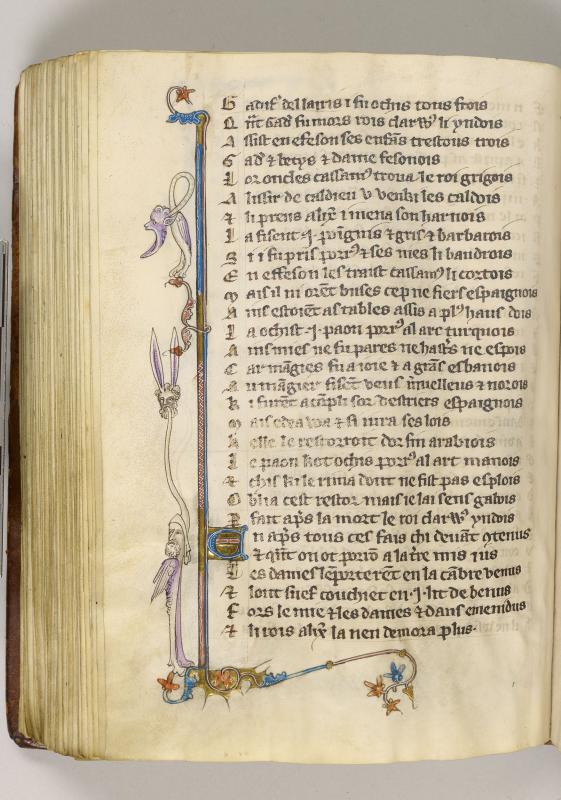 G adif' del lairis i fu ochis tous frois
Q nt Gad' fu mors rois clarus li yndois
A ssist en efeson ses enfans trestous trois
G ad' & betys & dame fesonois
L or oncles cassam' trova le roi grigois
A lissir de caldieu v venki les caldois
& li preus alix' i mena son harnois
L a fisent .j. & gris & barbarois
S i i fu pris porr' & ses nies li baudrois
E n effeson les traist cassam' li cortois
M ais il ni orent buses cep ne fiers espaignois
A ins estoient as tables assis a pl' haus dois
L a ochist .j. paon porr' al arc turquois
A ins mies ne fu pares ne hastes ne espois
C ar mangies fu a ioie & a grans esbanois
A u mangier fisent veus & norois
K i furent acompli sor destriers espaignois
M ais edea & si iura ses lois
K elle le restorroit dor fin arabiois
L e paon kot ochis porr' al arc manois
& chis ki le rima dont ne fist pas esplois
O blia cest restor mais ie lai sens gabois
R fait apres la mort le roi clarus yndois
E n apres tous ces fais chi devant contenus
& quant on ot porron a la terre mis ius
L es dames lenporterent en la canbre venus
& lont souef couchiet en .j. lit de benus
F ors le mie & les dames & dans emenidus
& li rois alix' la nen demora plus.